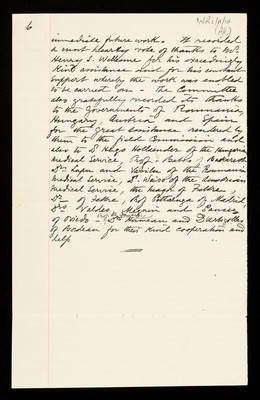 6
immediate future work. It recorded
a most hearty vote of thanks to Mr.
Henry S. Wellcome for his exceedingly
kind assistance and for his constant
support whereby the work was enabled
to be carried on - The Committee
also gratefully recorded its thanks
to the Governments of Roumania,
Hungary, Austria and Spain
for the great assistance rendered by
them to the field Commission and
also to Dr Hugo Hollender of the Hungarian
Medical Service, Prof. Babes of Bucharest
Drs and of the Roumanian
Medical Service, Dr. of the Austrian
Medical Service, the of
Dr of Prof Pittaluga of Madrid,
Drs Valdes, and
of Oviedo - and
of Bordeaux for their kind cooperation and
help